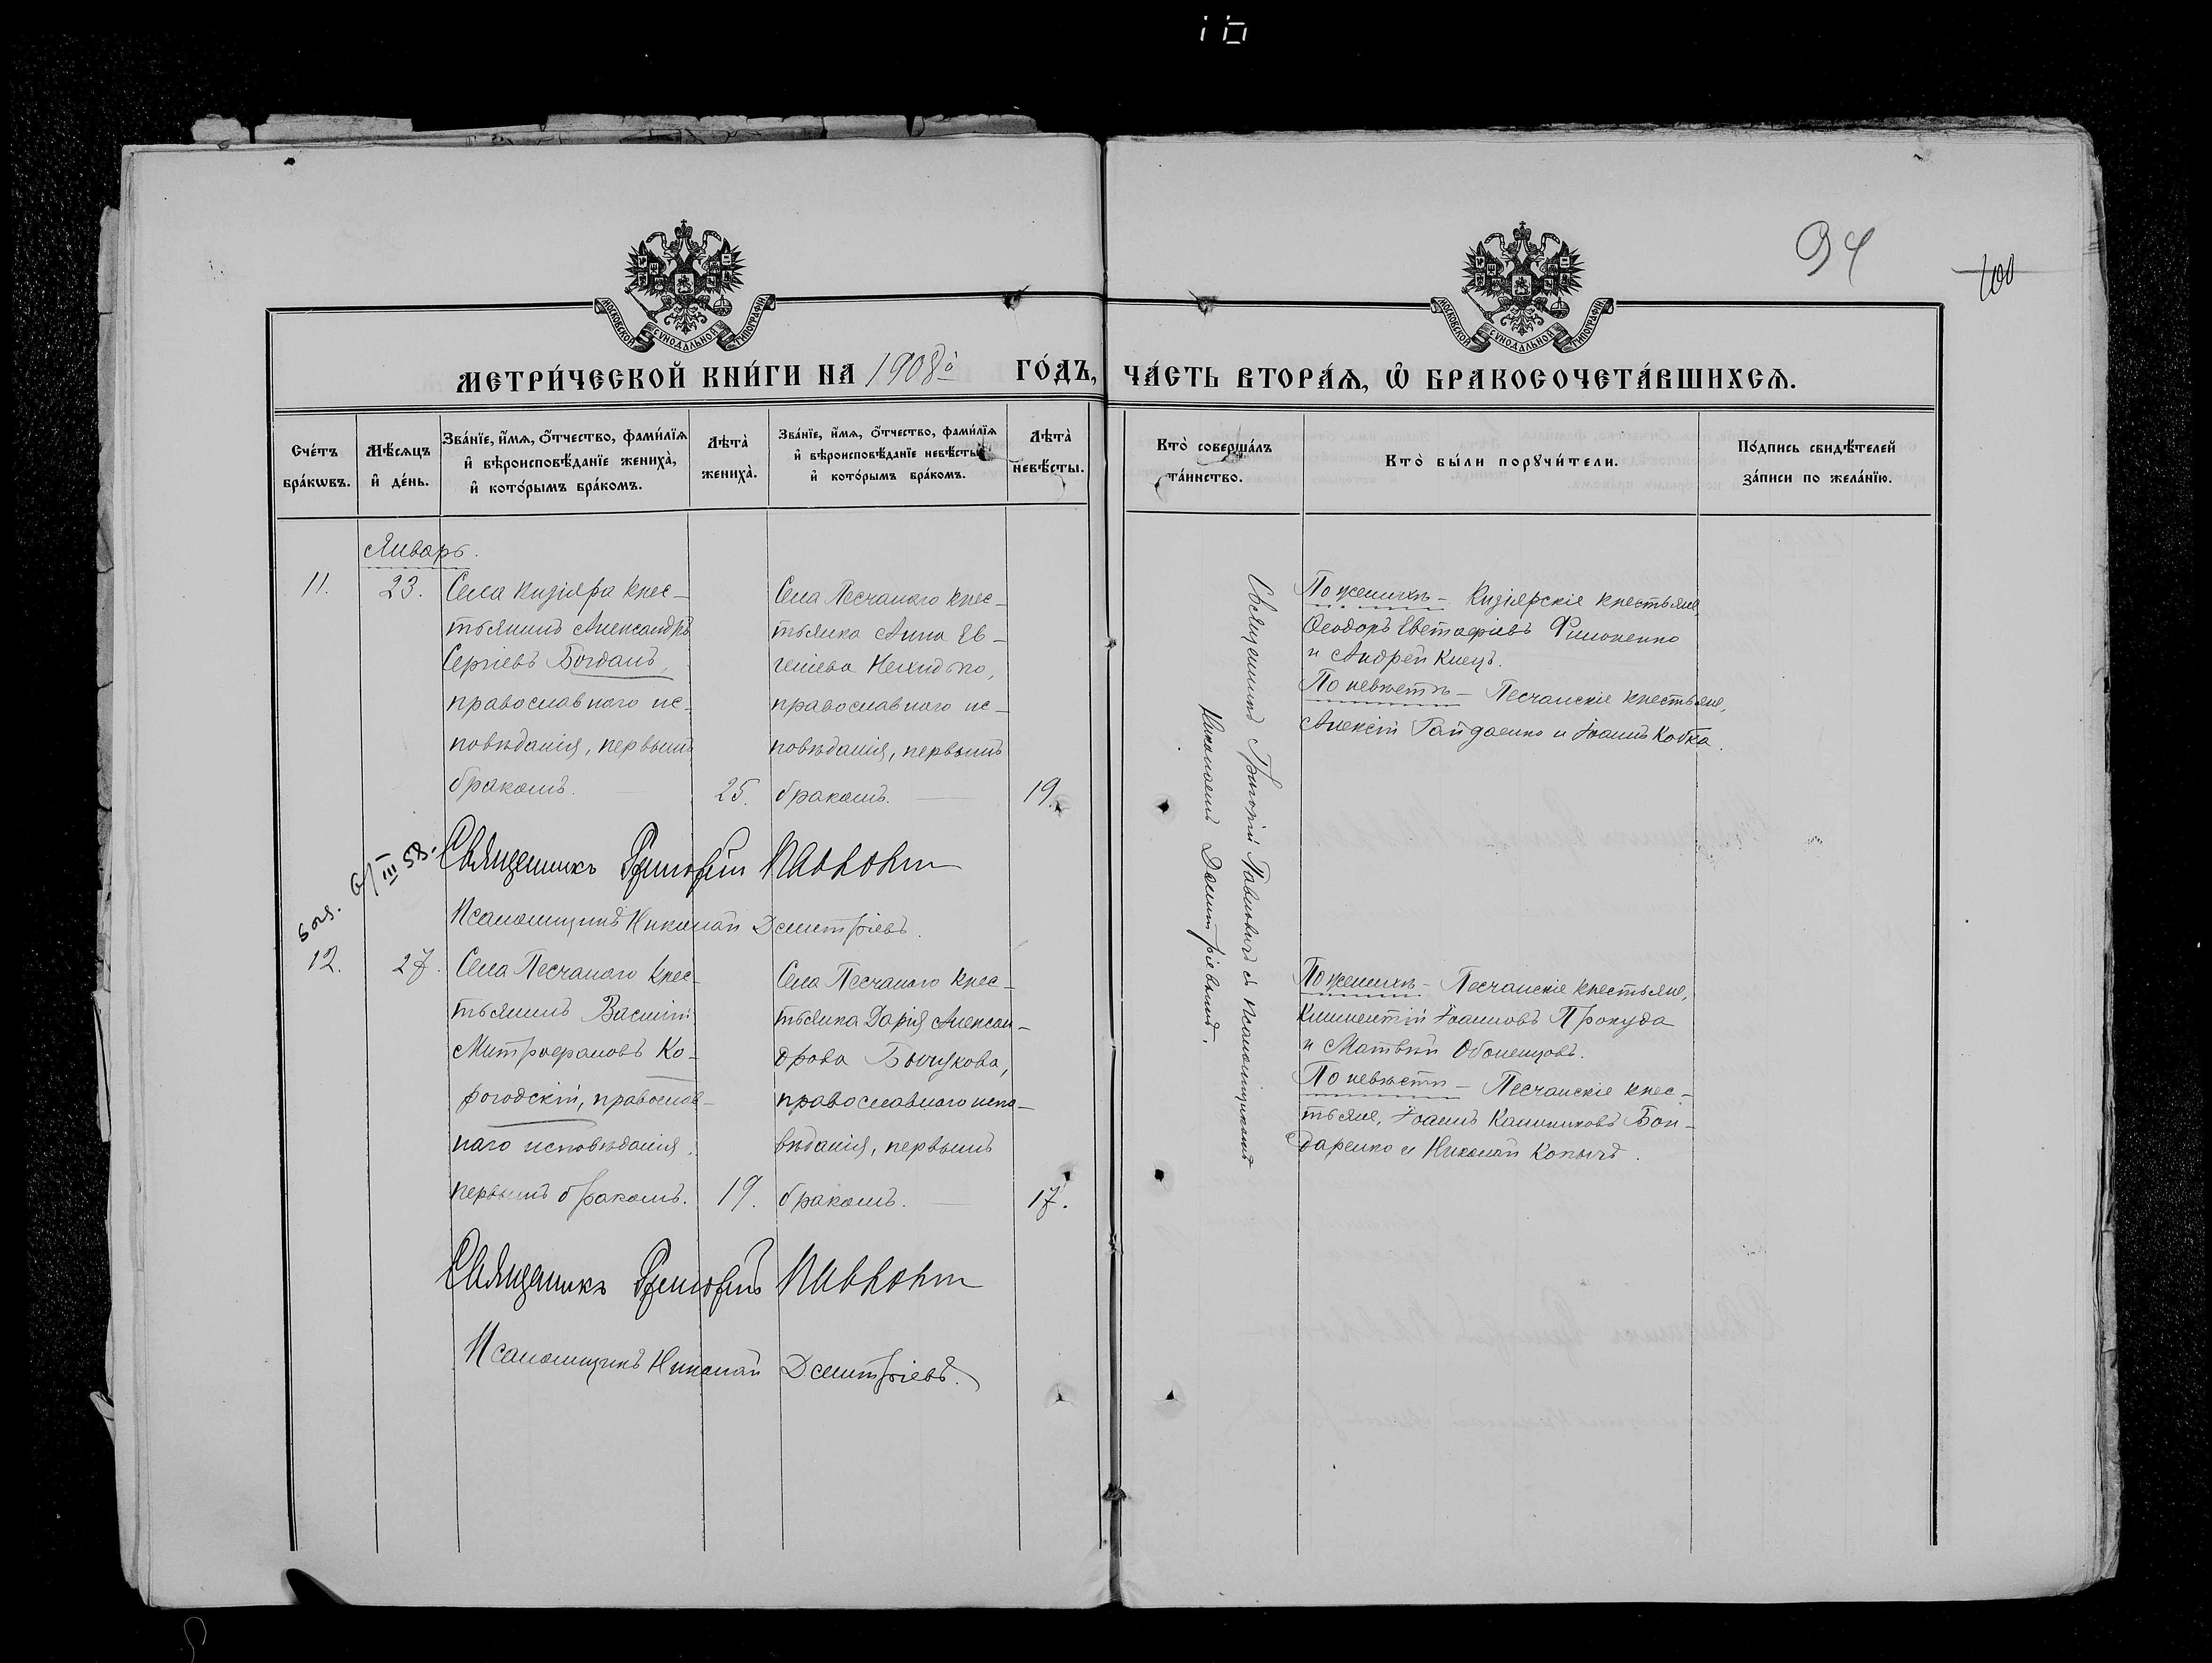 94
100
МОСКОВСКОЙ СѴНОДАЛЬНОЙ ТИПОГРАФІИ
МОСКОВСКОЙ СѴНОДАЛЬНОЙ ТИПОГРАФІИ
МЕТРИ́ЧЕСКОЙ КНИ́ГИ НА 1908й ГО́ДЪ, ЧА́СТЬ ВТОРА́Ѧ, Ѡ҆ БРАКОСОЧЕТА́ВШИХСѦ.
Сче́тъ
бра́кѡвъ.
Мѣ́сѧцъ
и҆ де́нь.
Зва́нїе, и҆́мѧ, ѻ҆́тчество, фами́лїѧ
и҆ вѣроисповѣ́данїе жениха̀,
и҆ кото́рымъ бра́комъ.
Лѣта̀
жениха̀.
Зва́нїе, и҆́мѧ, ѻ҆́тчество, фами́лїѧ
и҆ вѣроисповѣ́данїе невѣ́сты,
и҆ кото́рымъ бра́комъ.
Лѣта̀
невѣ́сты.
Кто̀ соверша́лъ
та́инство.
Кто̀ бы́ли порꙋчи́тели.
По́дпись свидѣ́телей
за́писи по жела́нїю.
Январь.
11.
23.
Села Кизіяра крес-
тьянинъ Александръ
Сергіевъ Богданъ,
православнаго ис-
повѣданія, первымъ
бракомъ.
25.
Села Песчанаго крес-
тьянка Анна Ев-
геніева
православнаго ис-
повѣданія, первымъ
бракомъ.
19.
Священникъ Григорій Павловичъ съ псаломщикомъ
Николаемъ Димитріевымъ.
По женихѣ - Кизіярскіе крестьяне,
Ѳеодоръ Евстафіевъ Филоненко
и Андрей
По невѣстѣ - Песчанскіе крестьяне,
Алексій Гайдаенко и Іоаннъ Кобка.
Священникъ Григорій Павловичъ
Псаломщикъ Николай Димитріевъ.
6/III 58.
12.
27.
Села Песчанаго крес-
тьянинъ Василій
Митрофановъ Ко-
рогодскій, православ-
наго исповѣданія,
первымъ бракомъ.
19.
Села Песчанаго крес-
тьянка Дарія Алексан-
дрова
православнаго испо-
вѣданія, первымъ
бракомъ.
17.
По женихѣ - Песчанскіе крестьяне,
Климентій Іоанновъ Прокуда
и Матвѣй
По невѣстѣ - Песчанскіе крес-
тьяне, Іоаннъ Каллиниковъ Бон-
даренко и Николай Копычъ.
Священникъ Григорій Павловичъ
Псаломщикъ Николай Димитріевъ.